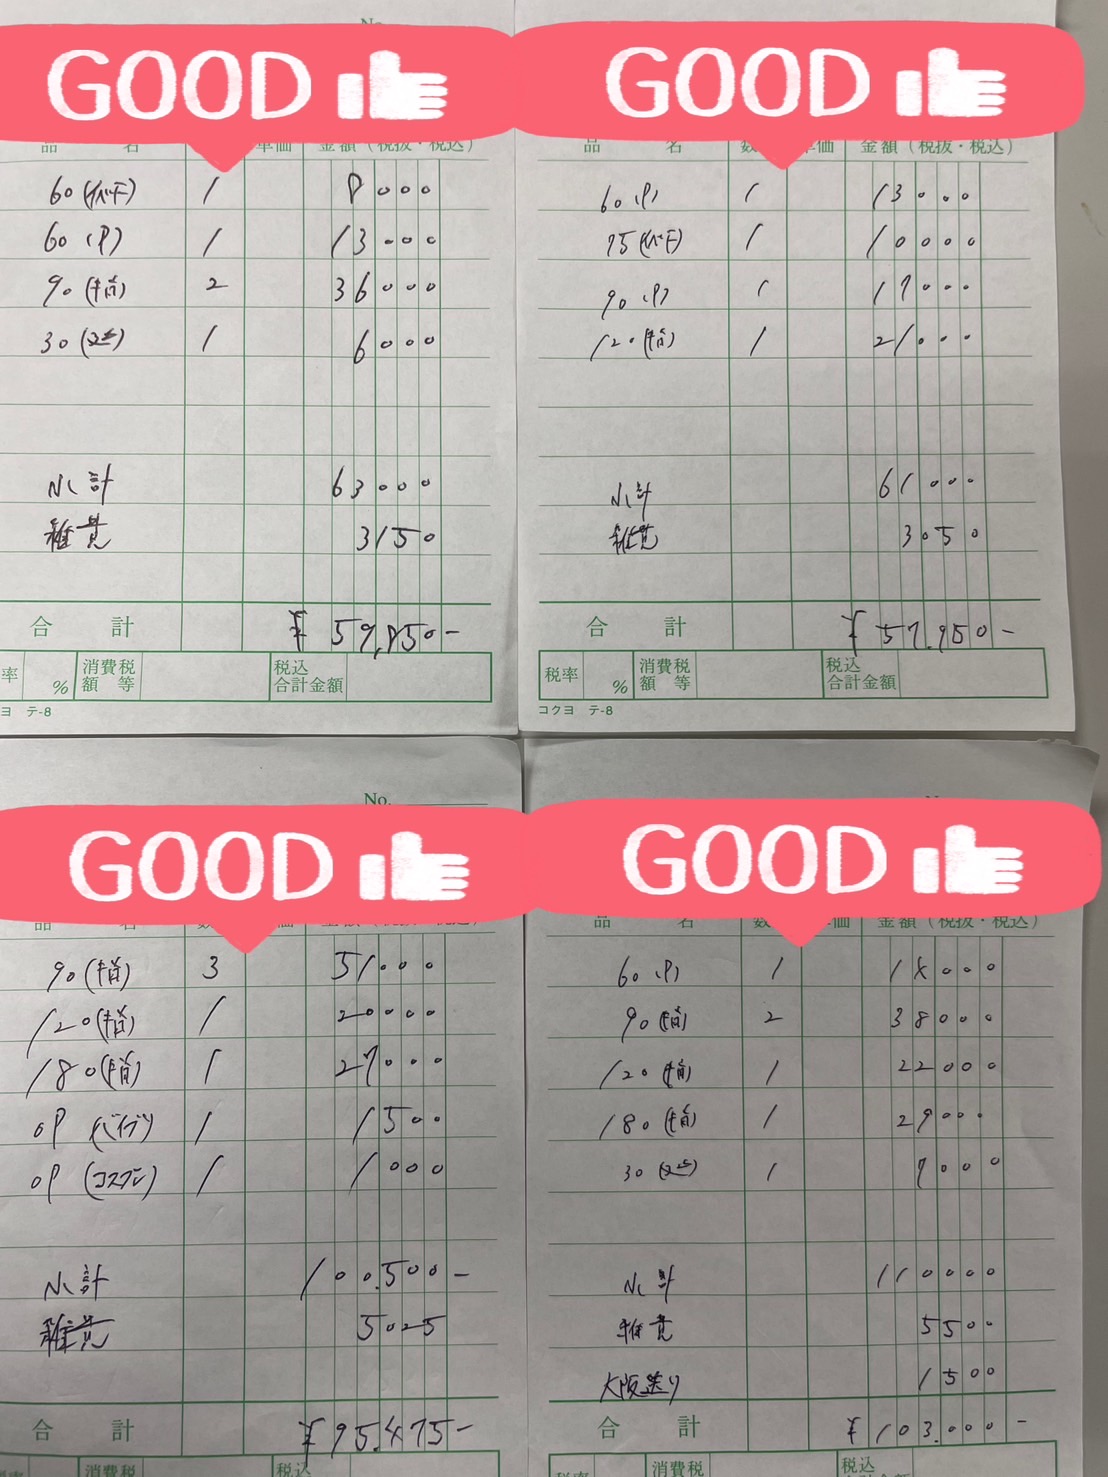 No.
GOOD
品 名 数 単価 金額(税抜・税込)
60(イベント) 1 8000
60(P) 1 13000
90(指) 2 36000
30(延) 1 6000
小計 63000
雑費 3150
合計 ¥59,850-
率 % 消費税額等 税込合計金額
ヨ テ-8
GOOD
品 名 数 単価 金額(税抜・税込)
60(P) 1 13000
75(イベント) 1 10000
90(P) 1 17000
120(指) 1 21000
小計 61000
雑費 3050
合計 ¥57.950-
税率 % 消費税額等 税込合計金額
コクヨ テ-8
No.
GOOD
品 名 数 価 金額(税抜・税込)
90(指) 3 51000
120(指) 1 20000
180(指) 1 27000
OP(バイブ) 1 1500
OP(コスプレ) 1 1000
小計 100.500-
雑費 5025
合計 ¥95.475-
消費税 税込
GOOD
品 名 数 単価 金額(税抜・税込)
60(P) 1 14000
90(指) 2 38000
120(指) 1 22000
180(指) 1 29000
30(延) 1 7000
小計 110000
雑費 5500
大阪送り 1500
合計 ¥103.000-
税率 消費税 税込